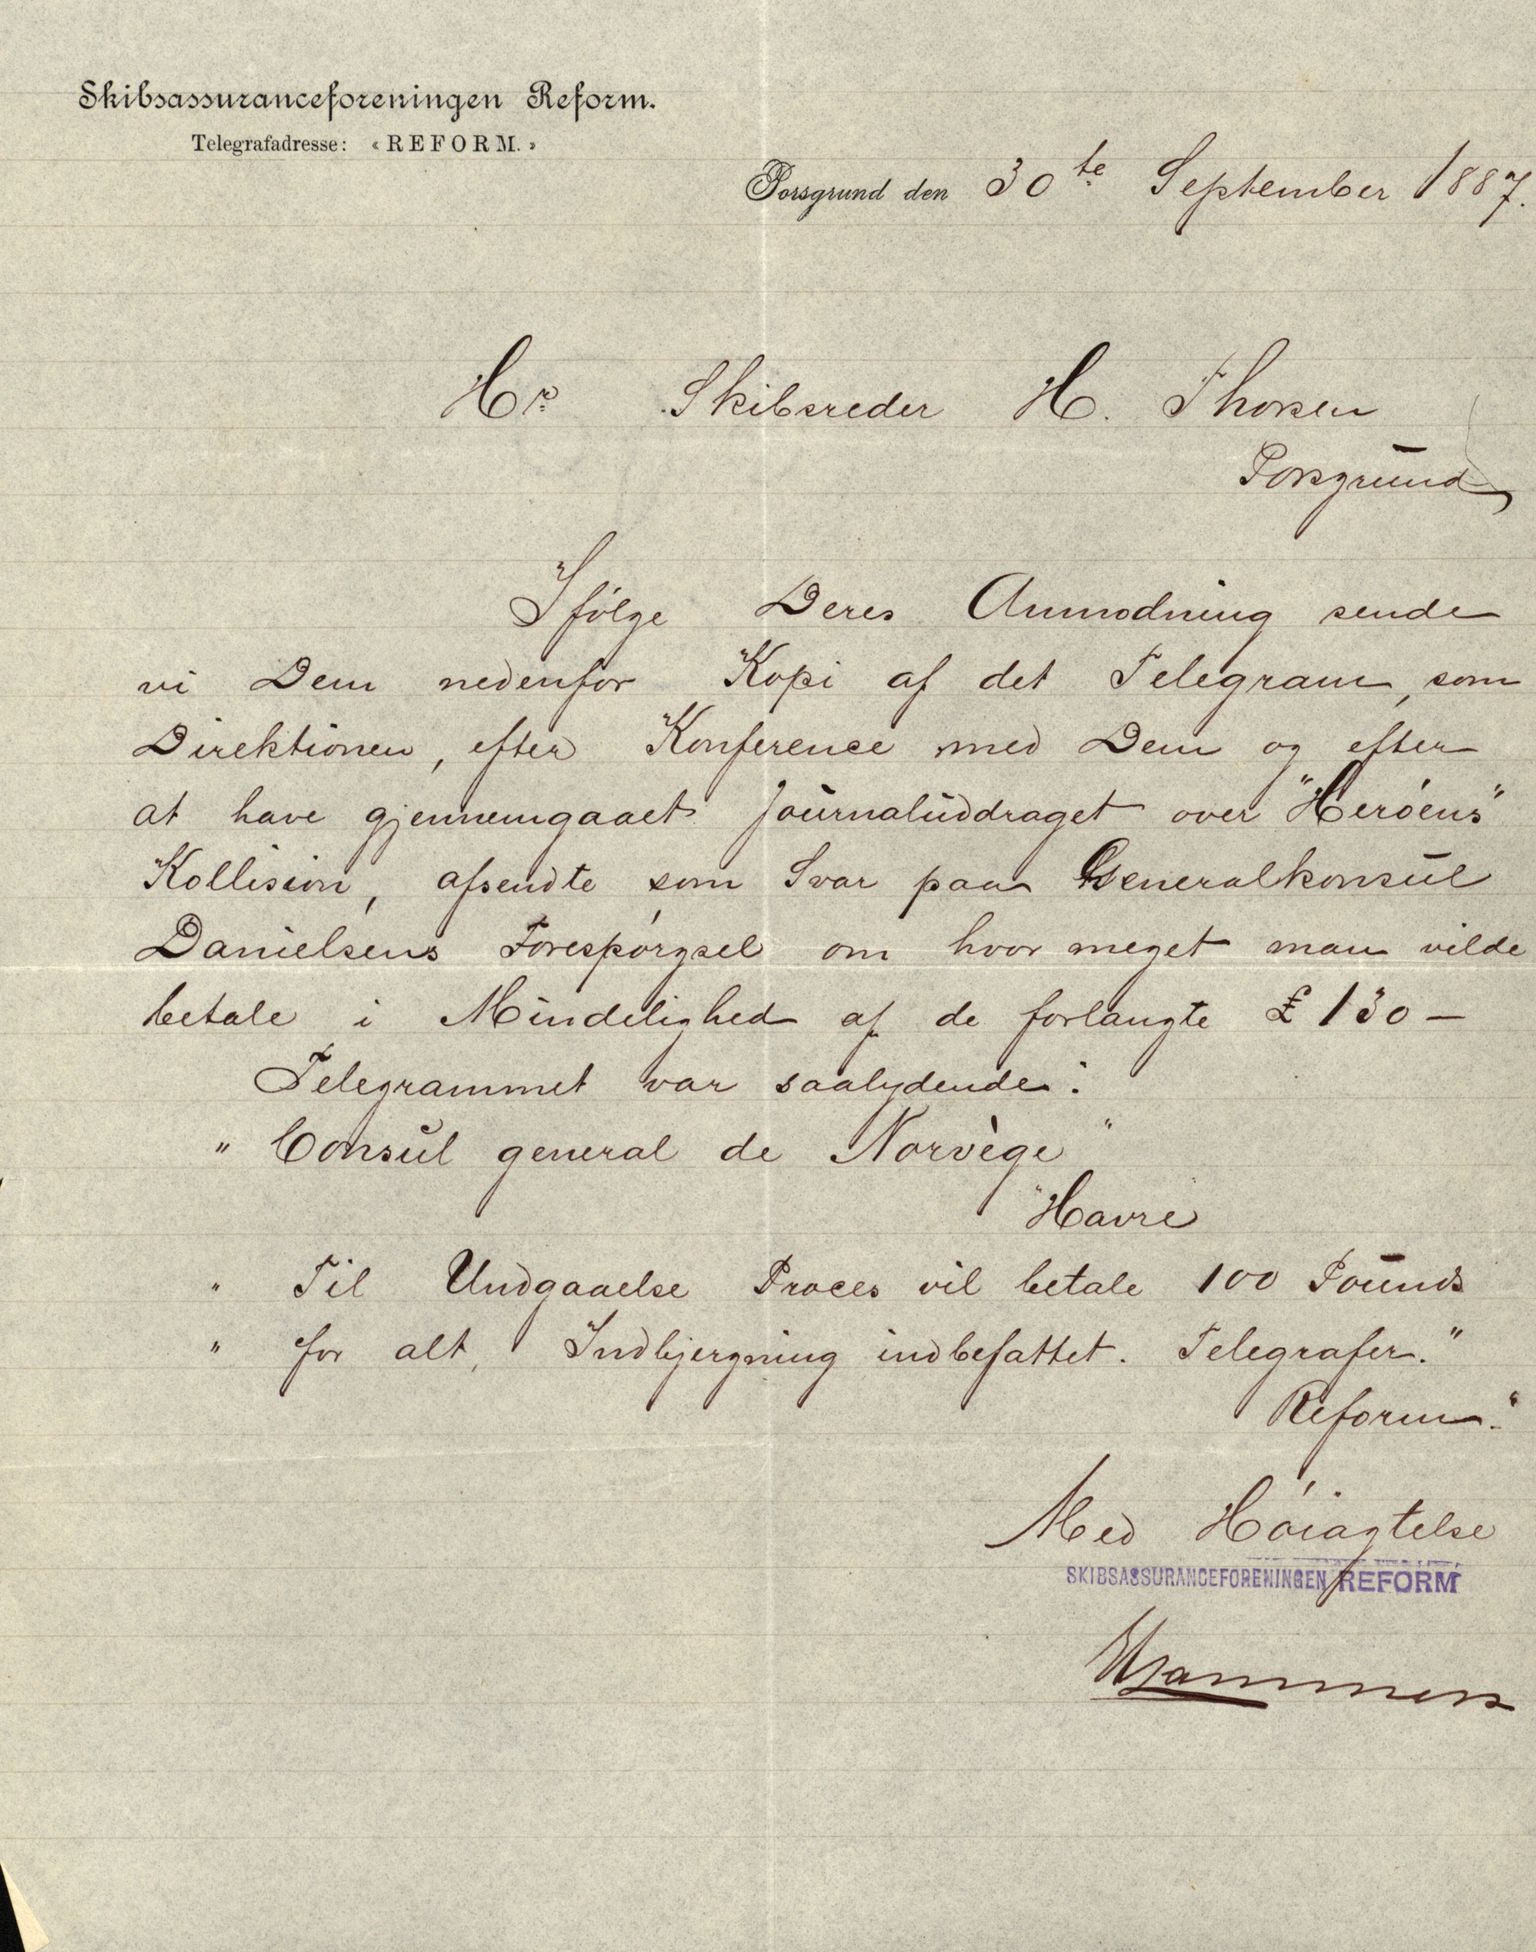 Skibsassuranceforeningen Reform.
Telegrafadresse: «REFORM.»
Porsgrund den 30te September 1887.
Hr. Skibsreder H. Thorsen
Porsgrund
Ifölge Deres Anmodning sende
vi Dem nedenfor Kopi af det Telegram, som
Direktionen, efter Konference med Dem og efter
at have gjennemgaaet Journaluddraget over "Heröens"
Kollision, afsendte som Svar paa Generalkonsul
Danielsens Forespörgsel om hvor meget man vilde
betale i Mindelighed af de forlangte £ 130 —
Telegrammet var saalydende:
" Consul general de Norvège "
"Havre
" Til Undgaaelse Proces vil betale 100 Pounds
" for alt, Indbjergning indbefattet. Telegrafer."
Reform."
Med Höiagtelse
SKIBSASSURANCEFORENINGEN REFORM